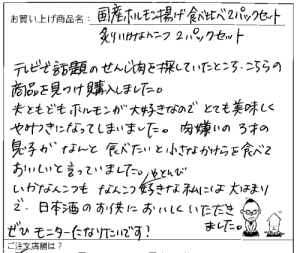 お買い上げ商品名: 国産ホルモン揚げ食べ比べ2パックセット
炙りいかなんこつ 2パックセット
テレビで話題のせんじ肉を探していたところ、こちらの
商品を見つけ購入しました。
夫ともどもホルモンが大好きなので とても美味しく
やみつきになってしまいました。肉嫌いの3才の
息子が なんと 食べたいと小さなかけらを食べて
おいしいと言っていました。
いかなんこつも なんこつ好きな私には 大はまり
で、日本酒のお供に おいしくいただき
ました。
ぜひ モニターになりたいです!
ご注文店舗は?